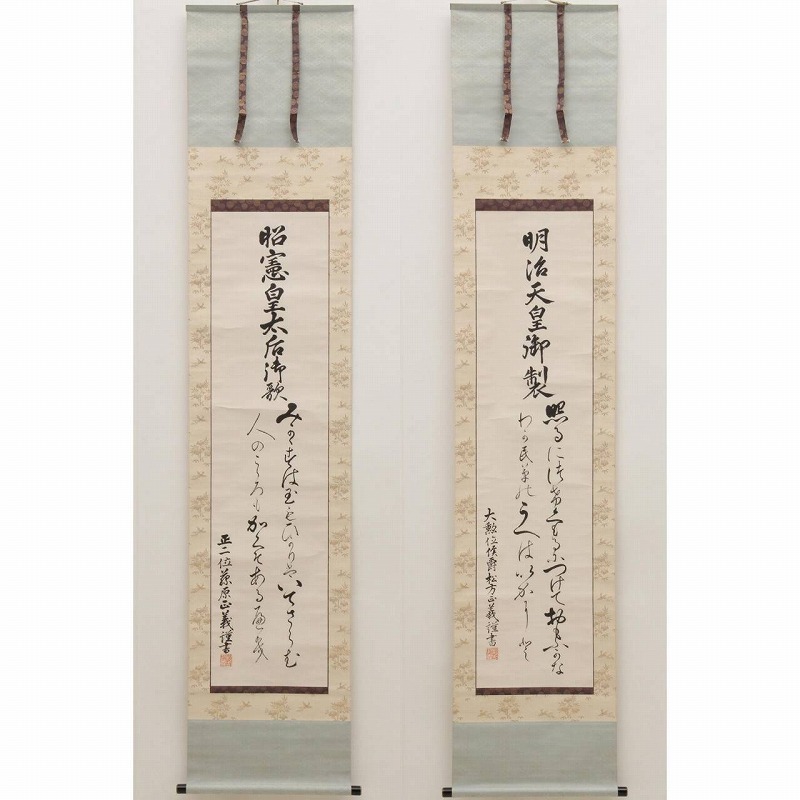 明治天皇御製
照るにつけくもるにつけておもふかな
わか民草のうへはいかにと
大勲位侯爵松方正義謹書
昭憲皇太后御歌
みかかすは玉もひかりはいてさらむ
人のこころもかくそある
正二位藤原正義謹書